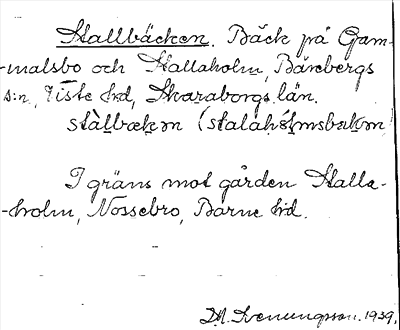 Stallbäcken. Bäck på Gam-
-malsbo och Stallaholm, Bärebergs
s:n, Viste hd, Skaraborgs län.
I gräns mot gården Stalla-
-holm, Nossebro, Barne hd.
D.A. Svenungsson. 1939.